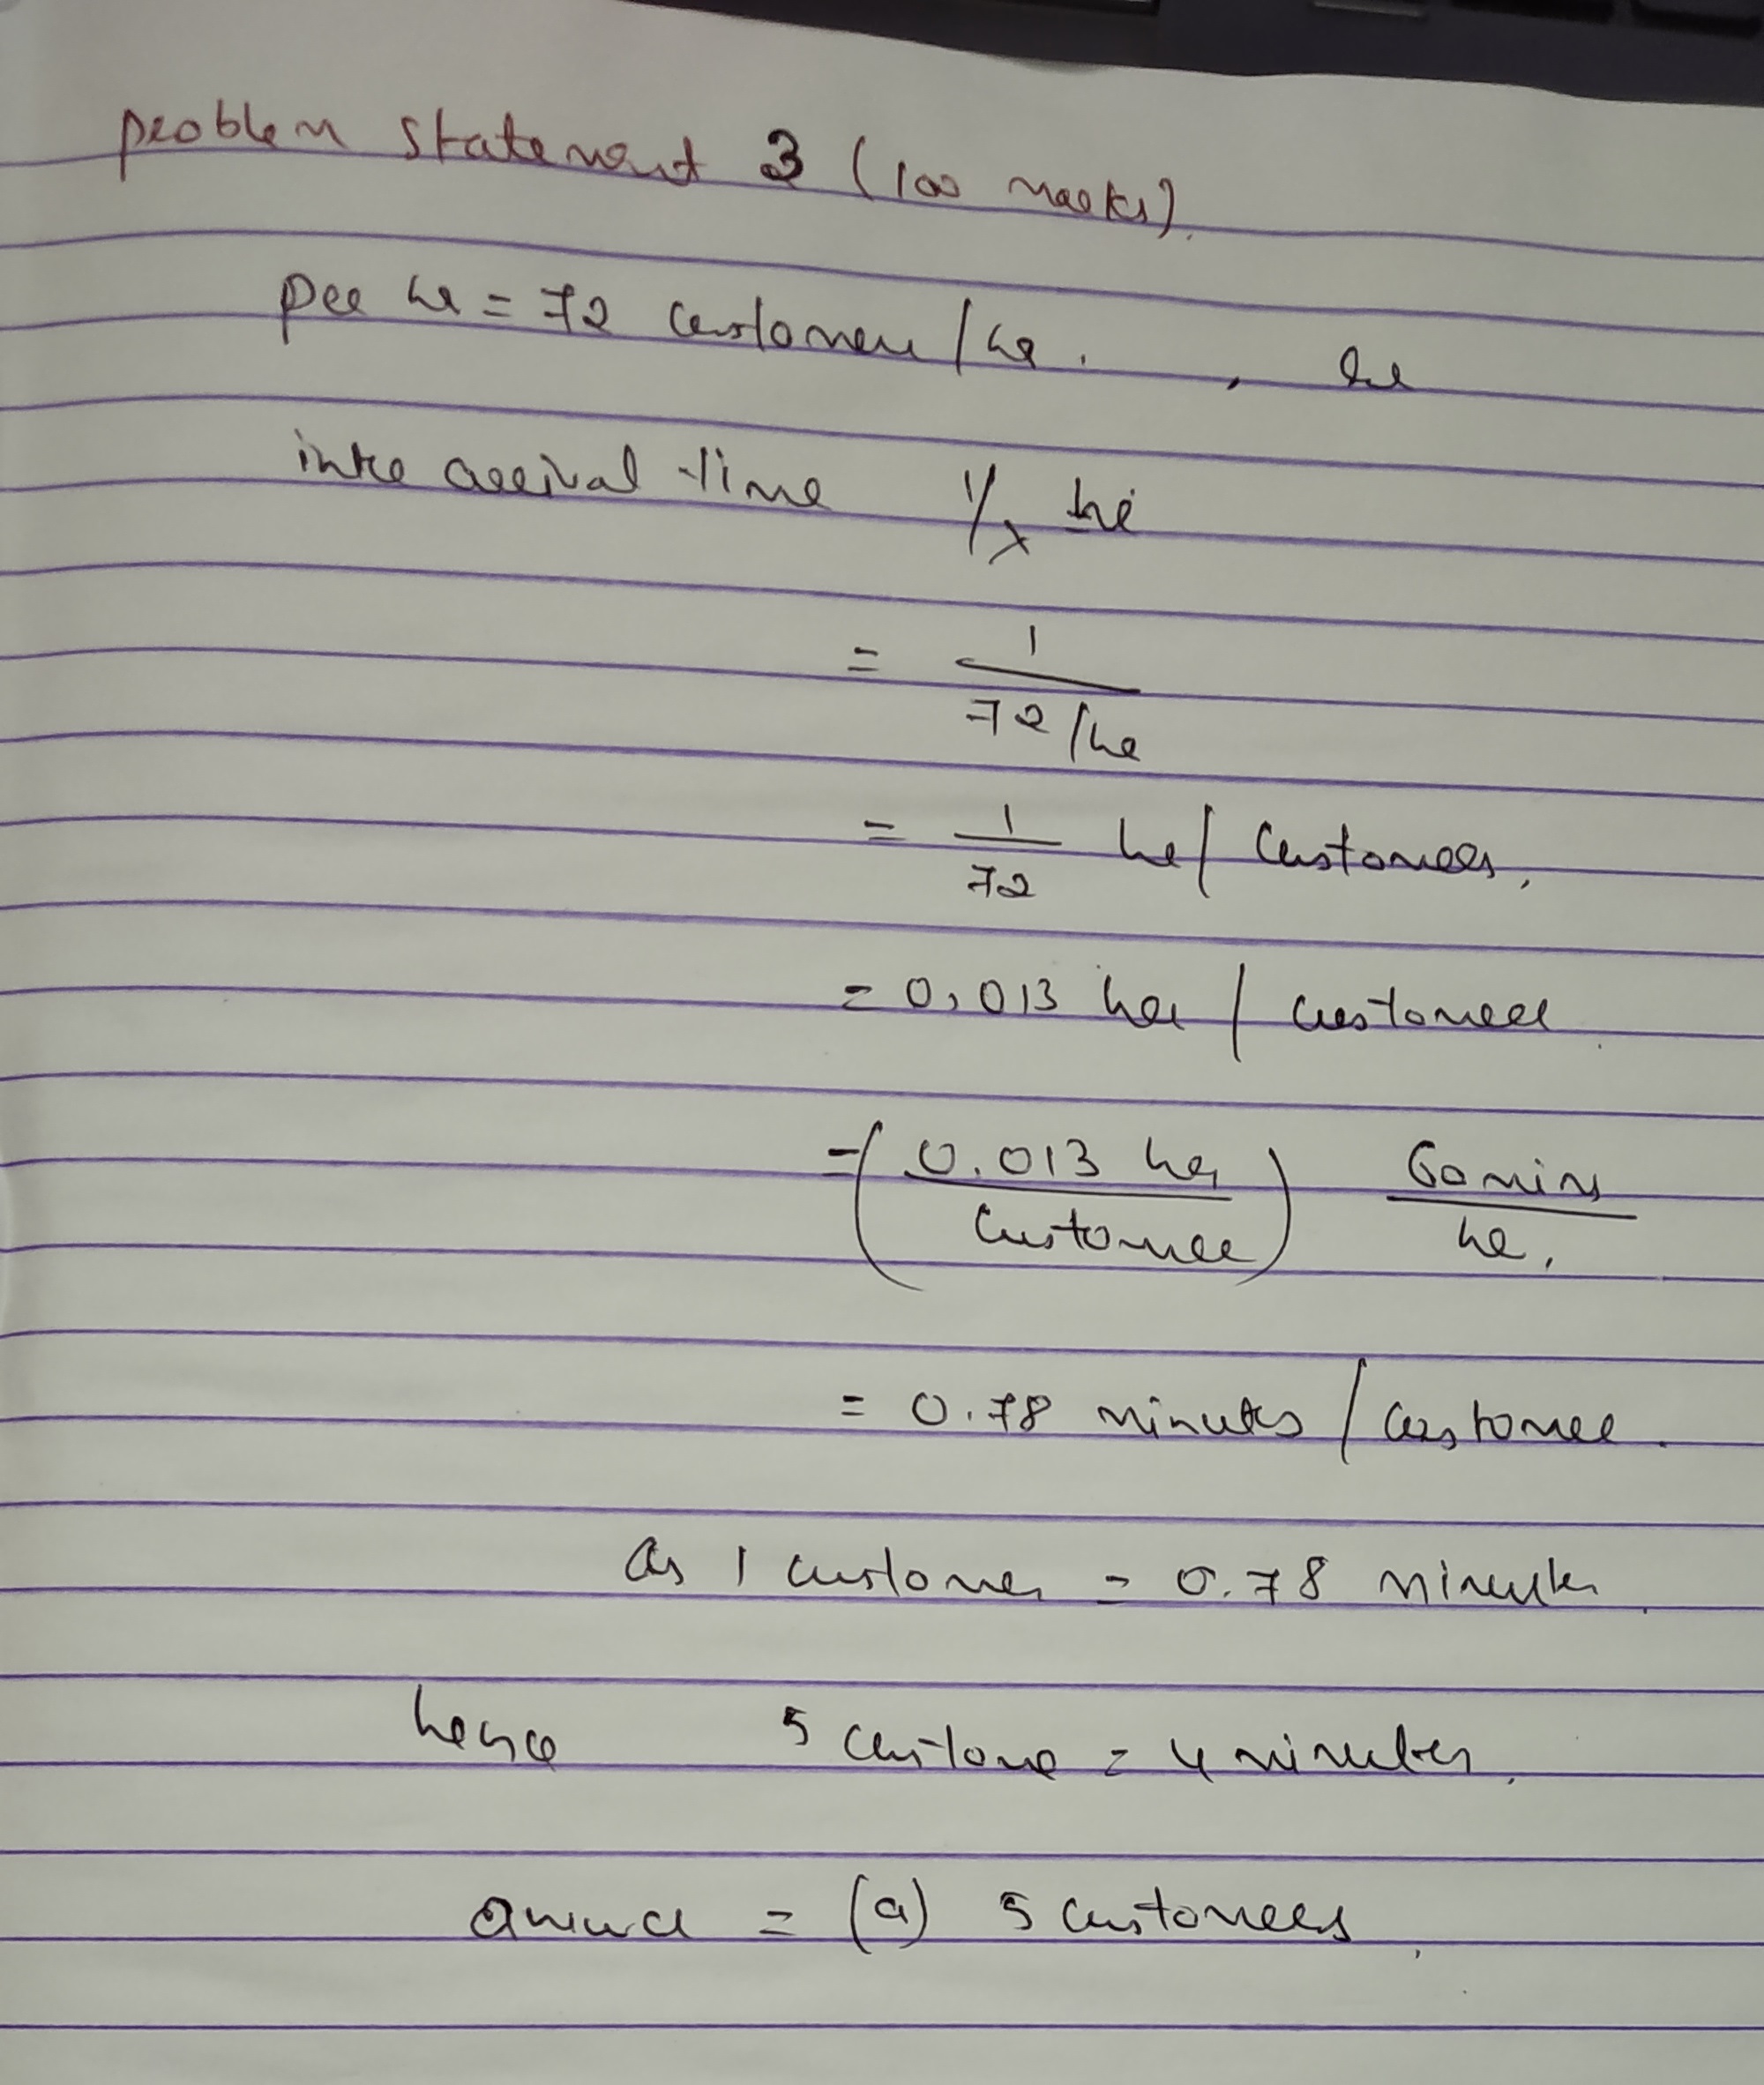 problem statement 3 (100 marks).
per hr = 72 customers / hr .
inter arrival time 1/λ hr
= 1
72 / hr
= 1 hr / Customers,
72
= 0.013 hr / customer
= ( 0.013 hr ) 60 mins
Customer hr,
= 0.78 minutes / customer .
as 1 customer = 0.78 minutes .
hence 5 customer = 4 minutes .
answer = (a) 5 customers